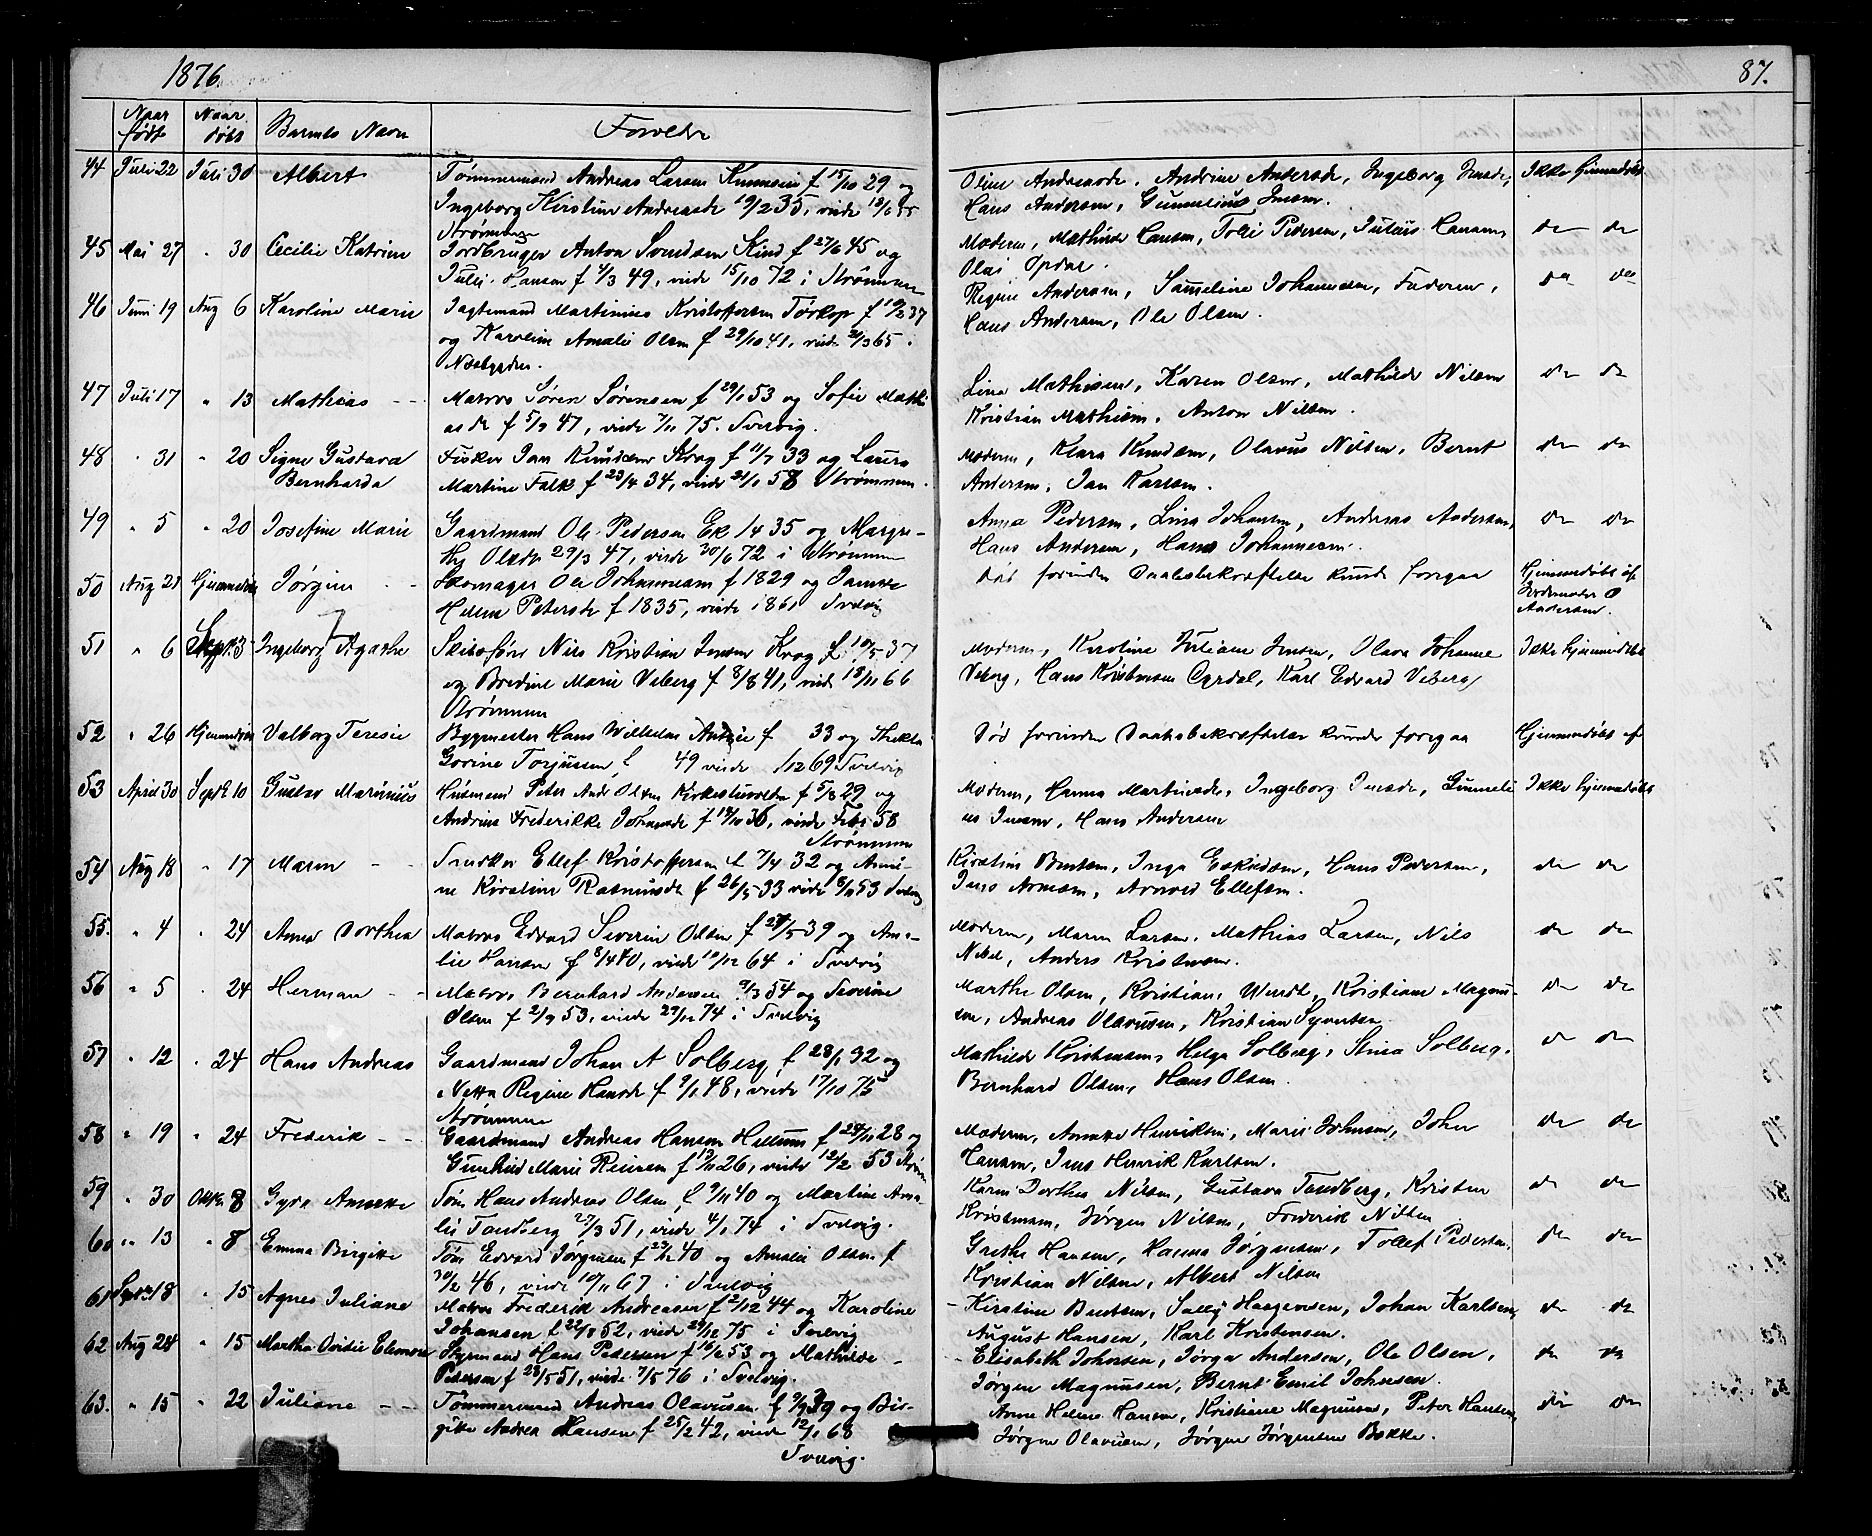 1876.
87.
Naar født Naar døbt Barnets Navn Forældre
44 Juli 22 Juli 30 Albert Tømmermand Andreas Larsen f 15/10 29 og
Ingeborg Kirstine Andreasdr 19/2 35, viede
Oline Andreasdr. Andrine Andersdr, Ingeborg Jensdr, Ikke Hjemmedøbt
Hans Andersen, Jensen.
Strømmen
45 Mai 27 " 30 Cecilie Katrine Jordbruger Anton Svendsen Kind f 27/6 45 og
Hansen f 4/3 49, viede 15/10 72 i Strømmen
Moderen, Mathilde Hansen, Pedersen, Julius Hansen, do do
Olai Opdal.
46 Juni 19 Aug 6 Karoline Marie Martinius Kristoffersen f 10/2 37
og Karoline Amalie Olsen f 29/10 41, viede 21/3 65.
Regine Andersen, Johannesen, Faderen, do do
Hans Andersen, Ole Olsen.
47 Juli 17 " 13 Mathias -- Matros Søren Sørensen f 29/1 53 og Sofie Mathi
asdr f 5/9 47, viede 7/11 75. Svelvig.
Lina Mathisen, Karen Olsen, Mathilde Nilsen do do
Kristian Mathisen, Anton Nilsen.
48 " 31 " 20 Signe Gustava
Bernharda
Fisker Jan Knudsen Krog f 11/7 33 og Laura
Martine Falk f 23/4 34, viede 21/1 58 Strømmen.
Moderen, Klara Knudsen, Olavus Nilsen, Bernt do do
Andersen, Jan Karlsen.
49 " 5 " 20 Josefine Marie Gaardmand Ole Pedersen Ek 14 35 og Margre-
the Olsdr 29/3 47, viede 30/6 72 i Strømmen
Anna Pedersen, Lina Johansen, Andreas Andersen, do do
Hans Andersen, Hans Johannesen.
50 Aug 21 Hjemmedøbt Jørgine -- Skomager Ole Johannesen f 1829 og
Helene Petersdr f 1835, viede 1861 Svelvig
Død forinden Daabsbekræftelse kunde foregaa Hjemmedøbt af
Jordemoder O
Andersen.
51 " 6 Sept. 3 Ingeborg Agathe Skibsfører Nils Kristian Jensen Krog f 10/5 37
og Bredine Marie Veberg f 8/8 41, viede 18/11 66
Strømmen
Moderen, Karoline Juliane Jensen, Olava Johanne Ikke Hjemmedøbt
Veberg, Hans Kristensen, Karl Edvard Veberg
52 " 26 Hjemmedøbt Valborg Teresie Bygmester Hans Wilhelm f 33 og Thekla
Gorine Torjussen f 49 viede /12 69 Svelvig
Død forinden Daabsbekræftelse kunde foregaa Hjemmedøbt af
53 April 30 Sept. 10 Gustav Marinius Husmand Peter Andr Olsen f 5/8 29 og
Andrine Frederikke f 18/10 36, viede Febr 58
Strømmen
Moderen, Hanna Ingeborg Jensdr, Ikke Hjemmedøbt
us Jensen, Hans Andersen
54 Aug 18 " 17 Maren -- Snedker Ellef Kristoffersen f 7/4 32 og
ne Kirstine Rasmusdr f 26/5 33 viede 8/11 53 Svelvig
Kirstine Berntsen, Inga Hans Pedersen, do do
Jens Arnesen, Arnold Ellefsen.
55. " 4 " 24 Anna Dorthea Matros Edvard Severin Olsen f 27/5 39 og Ama-
lie Hansen f 8/4 40, viede 10/12 64 i Svelvig
Moderen, Maren Larsen, Mathias Larsen, Nils do do
Anders Kristensen.
56 " 5 " 24 Herman -- Matros Bernhard Andersen 9/3 54 og Severine
Olsen f 2/9 53, viede 29/12 74 i Svelvig
Marthe Olsen, Kristiane Wendt, Kristiane Magnus- do do
sen, Andreas Olavusen, Kristian Syvertsen
57 " 12 " 24 Hans Andreas Gaardmand Johan A Solberg f 28/1 32 og
Netta Regine Hansdr f 9/1 48, viede 17/10 75
Strømmen
Mathilde Kristensen, Helga Solberg, Stina Solberg, do do
Bernhard Olsen, Hans Olsen.
58 " 19 " 24 Frederik -- Gaardmand Andreas Hansen f 24/11 28 og
Marie f 13/11 26, viede 12/2 53
Moderen, Annette Henriksen, Marie Johnsen, Johan do do
Hansen, Jens Henrik Karlsen.
59 " 30 Oktbr. 8 Gyda Annette Tøm Hans Andreas Olsen f 9/11 40 og Martine Ama-
lie Tandberg 27/3 51, viede 4/1 74 i Svelvig.
Karen Dorthea Nilsen, Gustava Tandberg, Kristen do do
Kristensen, Jørgen Nilsen, Frederik Nilsen
60 " 13 " 8 Emma Birgitte Tøm Edvard Jørgensen f 23/12 40 og Amalie Olsen f
30/2 46, viede 10/11 67 i Svelvig
Grethe Hansen, Hanna Jørgensen, Tollef Pedersen, do do
Kristian Nilsen, Albert Nilsen
61 Septbr 18 " 15 Agnes Juliane Matros Frederik Andreasen f 2/12 44 og Karoline
Johansen f 22/8 52, viede 29/12 75 i Svelvig
Kirstine Berntsen, Sally Haagensen, Johan Karlsen, do do
August Hansen, Karl Kristensen.
62 Aug 28 " 15 Martha Ovidie Elenora Styrmand Hans Pedersen f 16/2 53 og Mathilde
Petersen f 28/5 51, viede 7/5 76 i Svelvig.
Elisabeth Johnsen, Jørga Andersen, Ole Olsen, do do
Jørgen Magnusen, Bernt Emil Johnsen
63. " 15 " 22 Juliane -- Tømmermand Andreas Olavusen f 9/9 39 og Bir-
gitte Andrea Hansen f 25/2 42, viede 12/1 68
Svelvig.
Anne Helene Hansen, Kristiane Magnusen, Peter Hansen, do do
Jørgen Olavusen, Jørgen Jørgensen Bakke.